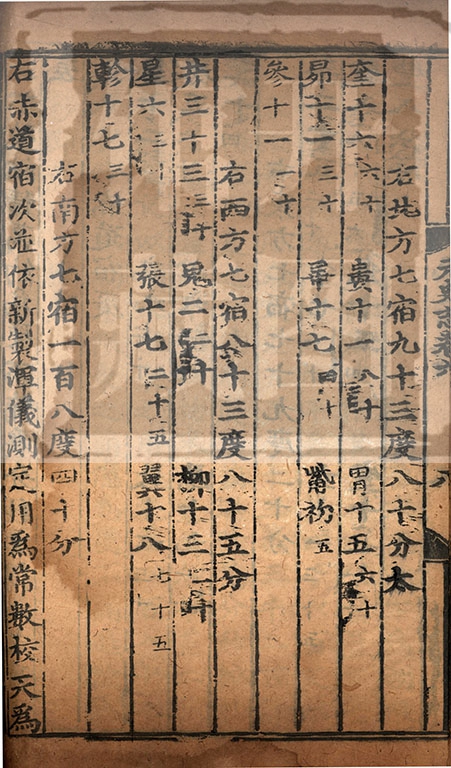 右北方七宿九十三度八十分太
奎十六六十 婁十一八十 胃十五六十
昴十一三十 畢十七四十 觜初五
參十一一十
右西方七宿八十三度八十五分
井三十三三十 鬼二二十 柳十三三十
星六三十 張十七二十五 翼十八七十五
軫十七三十
右南方七宿一百八度四十分
右赤道宿次並依新製渾儀測定用爲常數校天爲